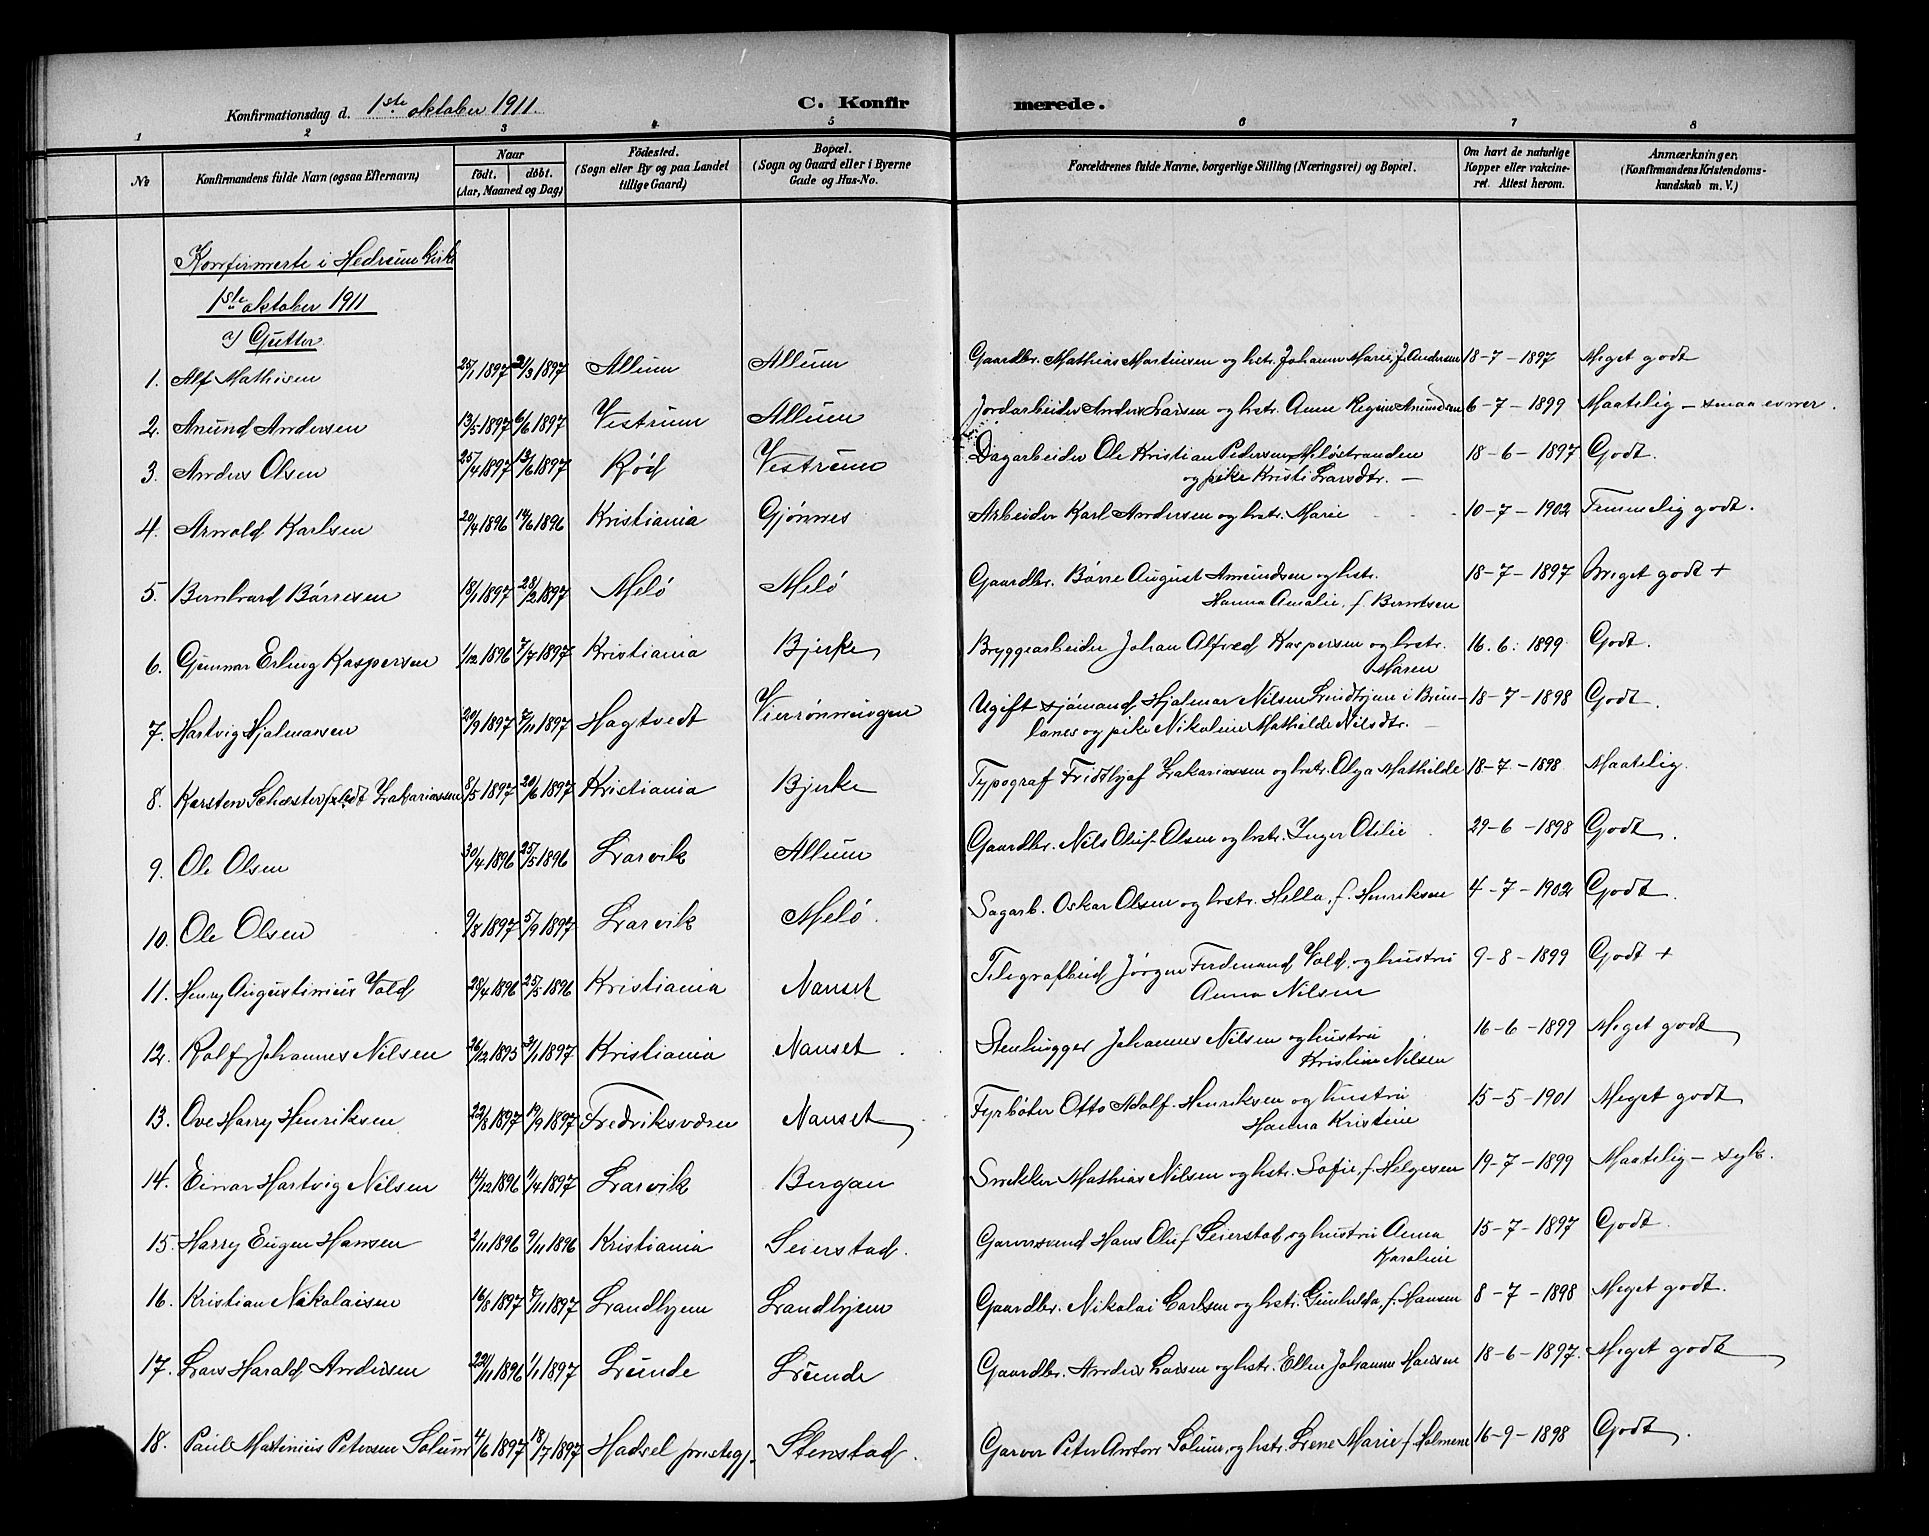 Konfirmationsdag d. 1ste oktober 1911. C. Konfirmerede.
1 2 3 4 5 6 7 8
No
Konfirmandens fulde Navn (ogsaa Efternavn)
Naar
født. døbt.
(Aar, Maaned og Dag)
Fødested.
(Sogn eller By og paa Landet
tillige Gaard)
Bopæl.
(Sogn og Gaard eller i Byerne
Gade og Hus-No.
Forældrenes fulde Navne, borgerlige Stilling (Næringsvei) og Bopæl.
Om havt de naturlige
Kopper eller vakcine-
ret. Attest herom.
Anmærkninger.
(Konfirmandens Kristendoms-
kundskab m. V.)
Konfirmerte i Hedrum kirke
1ste oktober 1911
a) Gutter.
1. Alf Mathisen 25/1 1897 21/3 1897 Allum Allum Gaardbr. Mathias Martinsen og hstr. Johanne Marie, f. Andersen 18-7-1897 Meget godt
2. Anund Andersen 13/5 1897 6/6 1897 Vestrum Allum Jordarbeider Anders Larsen og hstr. Anne Regine Anundsen 6-7-1899 Maatelig - smaa evner.
3. Anders Olsen 25/4 1897 13/6 1897 Rød Vestrum Dagarbeider Ole Kristian Pedersen, Meløstranden 18-6-1897 Godt.
og pike Kristi Larsdtr. -
4. Arnold Karlsen 20/4 1896 14/6 1896 Kristiania Gjønnes Arbeider Karl Andersen og hstr. Marie 10-7-1902 Temmelig godt.
5. Bernhard Børresen 18/1 1897 28/2 1897 Melø Melø Gaardbr. Børre August Amundsen og hstr. 18-7-1897 Meget godt +
Hanna Amalie, f. Berntsen
6. Gunnar Erling Kaspersen 1/12 1896 7/7 1897 Kristiania Bjerke Bryggearbeider Johan Alfred Kaspersen og hstr. 16.6.1899 Godt.
Maren
7. Hartvig Hjalmarsen 20/9 1897 7/11 1897 Hagtvedt Vierrønningen Ugift sjømand, Hjalmar Nilsen Lindhjem i Brun- 18-7-1898 Godt.
lanes og pike Nikoline Mathilde Nilsdtr. -
8. Karsten Schesterfeldt Zakariassen 8/5 1897 20/6 1897 Kristiania Bjerke Typograf Fridthjof Zakariassen og hstr. Olga Mathilde 18-7-1898 Maatelig.
9. Ole Olsen 30/4 1896 25/5 1896 Larvik Allum Gaardbr. Nils Oluf Olsen og hstr. Inger Otilie 29-6-1898 Godt.
10. Ole Olsen 9/8 1897 5/9 1897 Larvik Melø. Sagarb. Oskar Olsen og hstr. Hella, f. Henriksen 4-7-1902 Godt.
11. Henry Augustinius Vold 28/4 1896 25/5 1896 Kristiania Nanset Telegrafbud Jørgen Ferdinand Vold, og hustru 9-8-1899 Godt +
Anna Nilsen
12. Rolf Johannes Nilsen 26/12 1895 3/1 1897 Kristiania Nanset. Stenhugger Johannes Nilsen og hustru 16-6-1899 Meget godt
Kristine Nilsen
13. Ove Harry Henriksen 22/8 1897 19/9 1897 Fredriksværn Nanset Fyrbøter Otto Adolf Henriksen og hustru 15-5-1901 Meget godt
Hanna Kristine
14. Einar Hartvig Nilsen 14/12 1896 11/4 1897 Larvik Bergan Snekker Mathias Nilsen og hstr. Sofie, f. Helgesen 19-7-1899 Maatelig - syk.
15. Harry Eugen Hansen 2/11 1896 9/11 1896 Kristiania Seierstad. Garversvend Hans Oluf Seierstad, og hustru Anna 15-7-1897 Godt.
Karoline
16. Kristian Nikolaisen 16/8 1897 7/11 1897 Landhjem Landhjem Gaardbr. Nikolai Carlsen og hstr. Gunhilda, f. Hansen 8-7-1898 Meget godt.
17. Lars Harald Andersen 22/11 1896 1/1 1897 Lunde Lunde Gaardbr. Anders Larsen og hstr. Ellen Johanne Hansen 18-6-1897. Meget godt
18. Paul Martinius Petersen Solum 4/6 1897 18/7 1897 Hadsel prestegj. Stenstad. Garver Peter Anton Solum, og hstr. Lene Marie f. Holmene 16-9-1898 Godt.